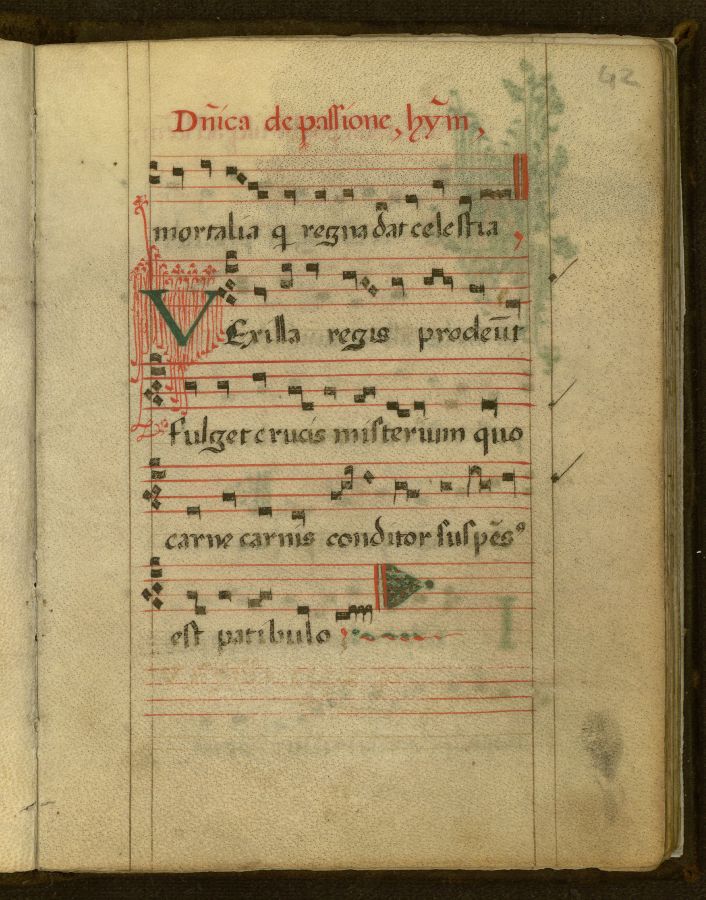 42
Dñica de passione, hym̃,
mortalia q̃ regna dat celestia,
VExilla regis prodeūt
fulget crucis misterium quo
carne carnis conditor suspẽsꝰ
est patibulo